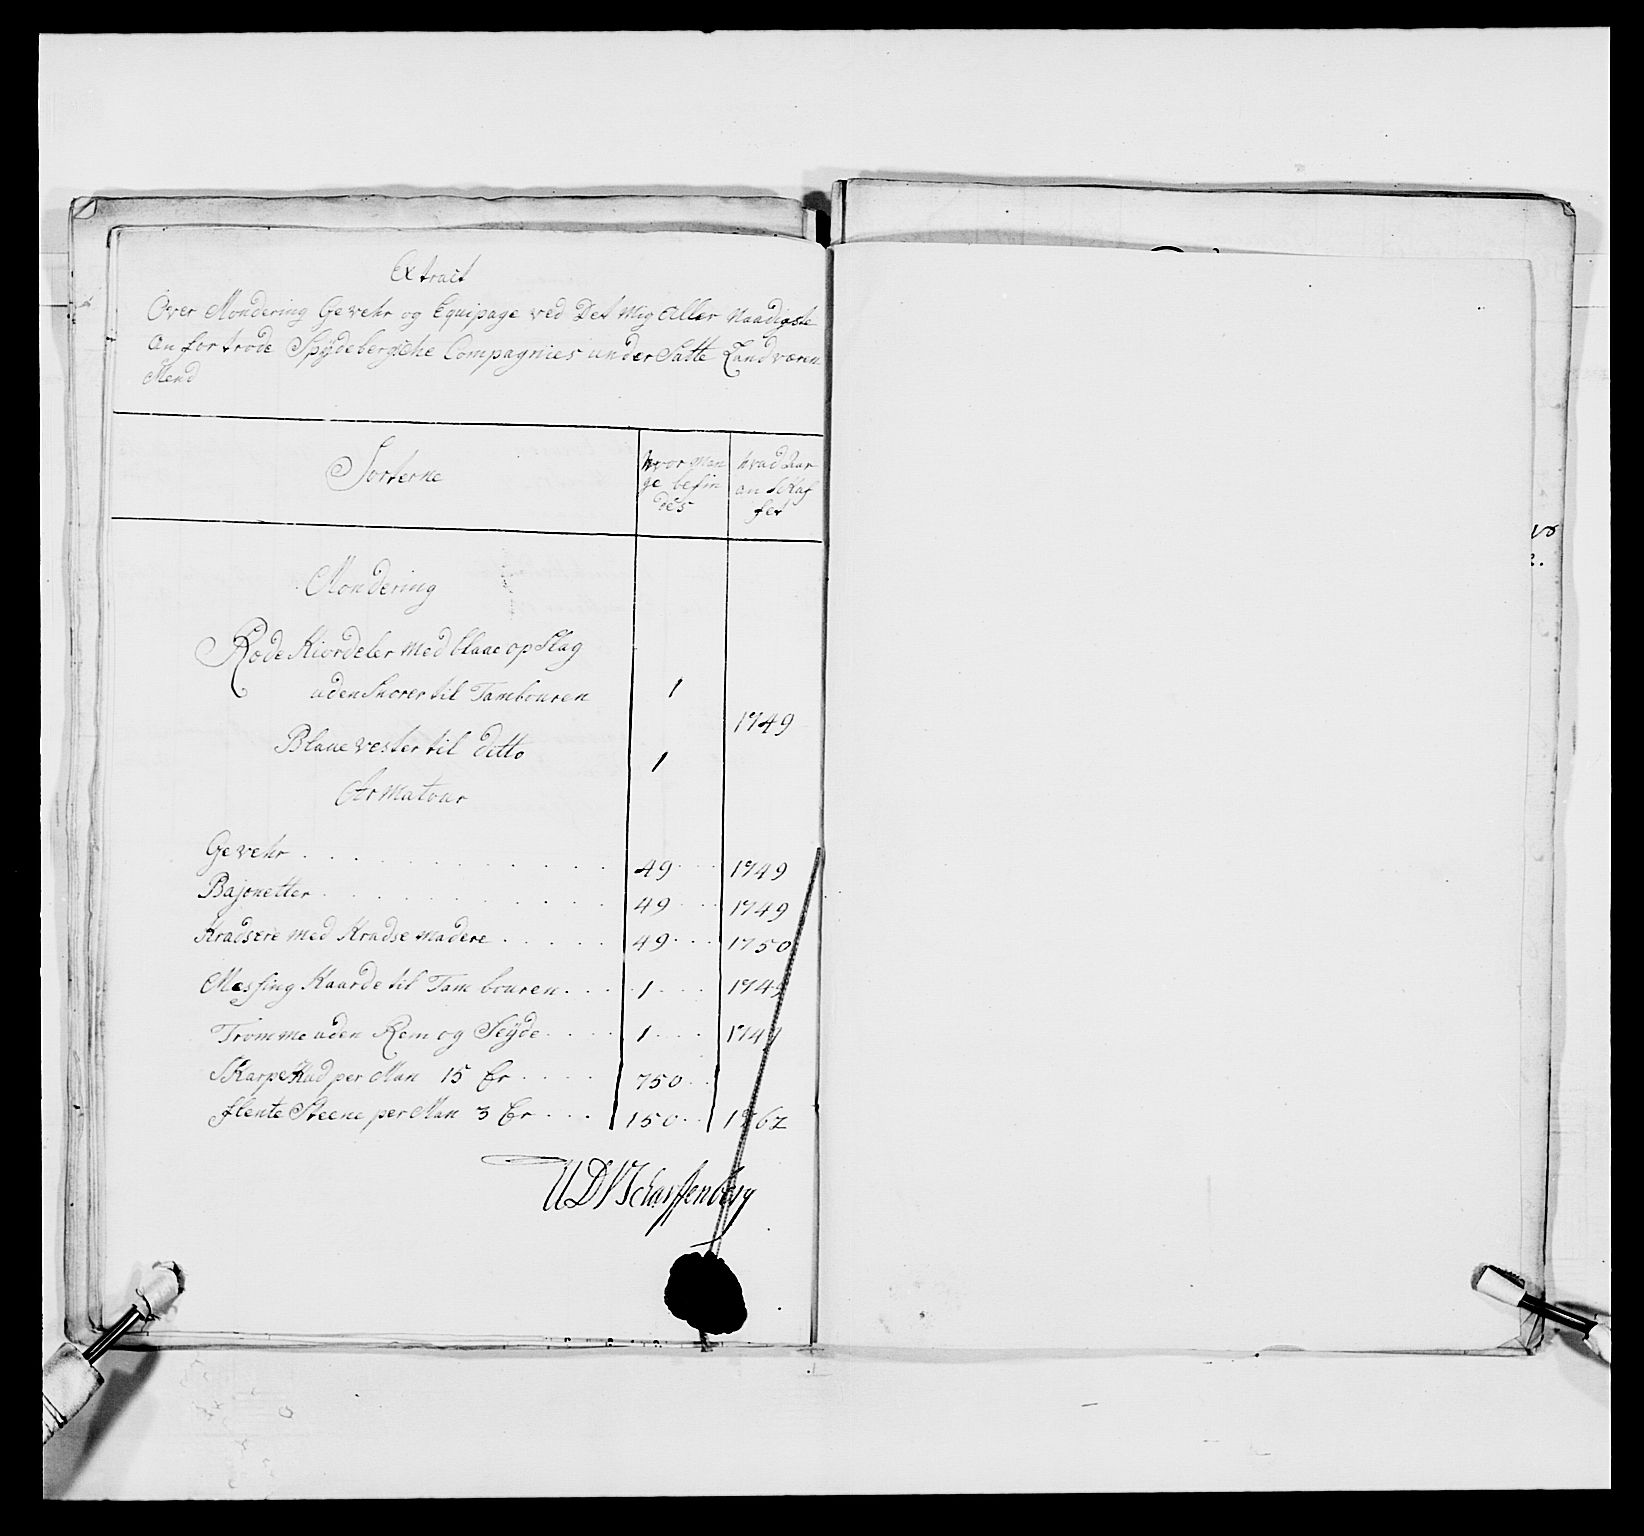 Extract
Over Mondering Gevehr og Equipage ved Det Mig Aller Naadigste
An fortrode Spÿdebergiche Compagnies under Satte Landværn
Mend
Sorterne
hvor man
ge befin
des
hvad Aar
an skaf
fet
Mondering
Røde Kiordeler Med blaae op Slag
uden Snorer til Tambouren 1
1749
Blaae vester til ditto 1
Armatour
Gevehr 49 1749
Bajonetter 49 1749
Kradsere med Kradse madere 49 1750
Messing Kaarde til Tambouren 1
Tromme uden Rem og Seÿde 1
Skarpe Kud per Man 15 Er 750
flente Steene per Man 3 Er 150 1762
Scharffenberg